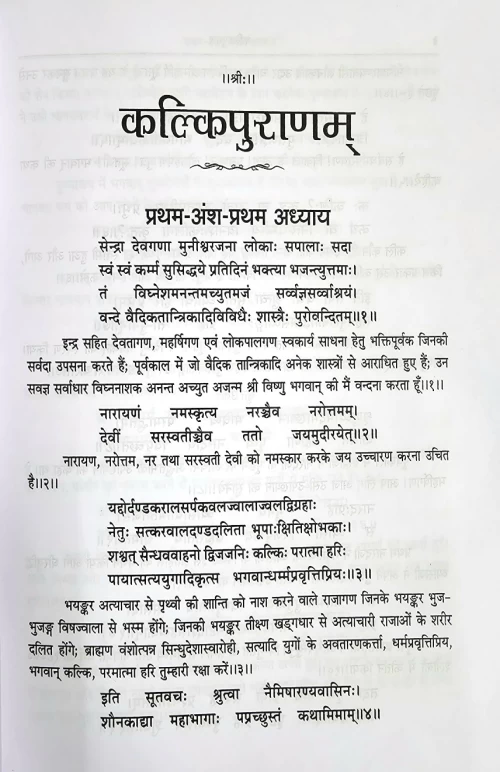 ।।श्रीः।।
कल्किपुराणम्
प्रथम-अंश-प्रथम अध्याय
सेन्द्रा देवगणा मुनीश्वरजना लोकाः सपालाः सदा
स्वं स्वं कर्म्म सुसिद्धये प्रतिदिनं भक्त्या भजन्त्युत्तमाः।
तं विघ्नेशमनन्तमच्युतमजं सर्व्वज्ञसर्व्वाश्रयं।
वन्दे वैदिकतान्त्रिकादिविविधैः शास्त्रैः पुरोवन्दितम्॥१॥
इन्द्र सहित देवतागण, महर्षिगण एवं लोकपालगण स्वकार्य साधना हेतु भक्तिपूर्वक जिनकी
सर्वदा उपसना करते हैं; पूर्वकाल में जो वैदिक तान्त्रिकादि अनेक शास्त्रों से आराधित हुए हैं; उन
सवज्ञ सर्वाधार विघ्ननाशक अनन्त अच्युत अजन्म श्री विष्णु भगवान् की मैं वन्दना करता हूँ॥१॥
नारायणं नमस्कृत्य नरञ्चैव नरोत्तमम्।
देवीं सरस्वतीञ्चैव ततो जयमुदीरयेत्॥२॥
नारायण, नरोत्तम, नर तथा सरस्वती देवी को नमस्कार करके जय उच्चारण करना उचित
है॥२॥
यद्दोर्दण्डकरालसर्पकवलज्वालाज्वलद्विग्रहाः
नेतुः सत्करवालदण्डदलिता भूपाःक्षितिक्षोभकाः।
शश्वत् सैन्धववाहनो द्विजजनिः कल्किः परात्मा हरिः
पायात्सत्ययुगादिकृत्स भगवान्धर्म्मप्रवृत्तिप्रियः॥३॥
भयङ्कर अत्याचार से पृथ्वी की शान्ति को नाश करने वाले राजागण जिनके भयङ्कर भुज-
भुजङ्ग विषज्वाला से भस्म होंगे; जिनकी भयङ्कर तीक्ष्ण खड्गधार से अत्याचारी राजाओं के शरीर
दलित होंगे; ब्राह्मण वंशोत्पन्न सिन्धुदेशाश्वारोही, सत्यादि युगों के अवतारणकर्त्ता, धर्मप्रवृत्तिप्रिय,
भगवान् कल्कि, परमात्मा हरि तुम्हारी रक्षा करें॥३॥
इति सूतवचः श्रुत्वा नैमिषारण्यवासिनः।
शौनकाद्या महाभागाः पप्रच्छुस्तं कथामिमाम्॥४॥